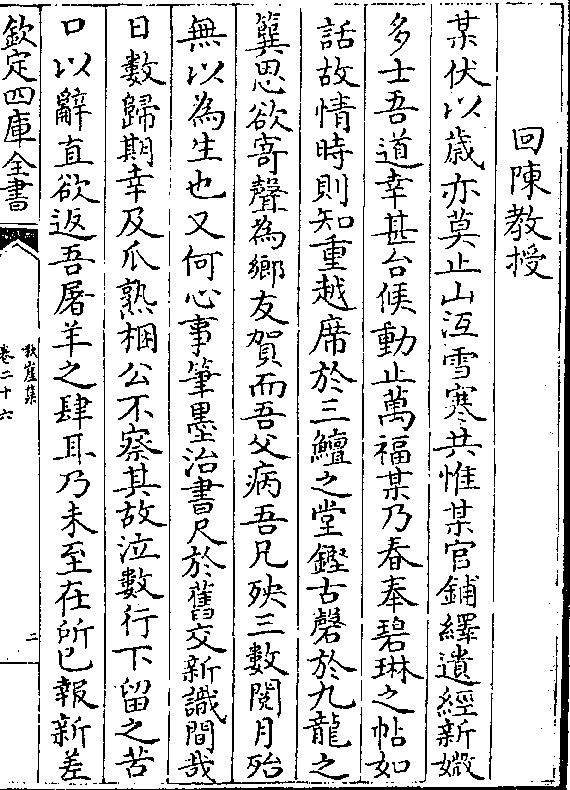 回陳教授
某伏以歳亦莫止山沍雪寒共惟某官鋪繹遺經新媺
多士吾道幸甚台候動止萬福某乃春奉碧琳之帖如
話故情時則知重越席於三鱣之堂鏗古磬於九龍之
簨思欲寄聲為鄉友賀而吾父病吾兄殃三數閱月殆
無以為生也又何心事筆墨治書尺於舊交新識間哉
日數歸期幸及瓜熟梱公不察其故泣數行下留之苦
口以辭直欲返吾屠羊之肆耳乃未至在所已報新差
欽定四庫全書
秋崖集
卷二十六
二